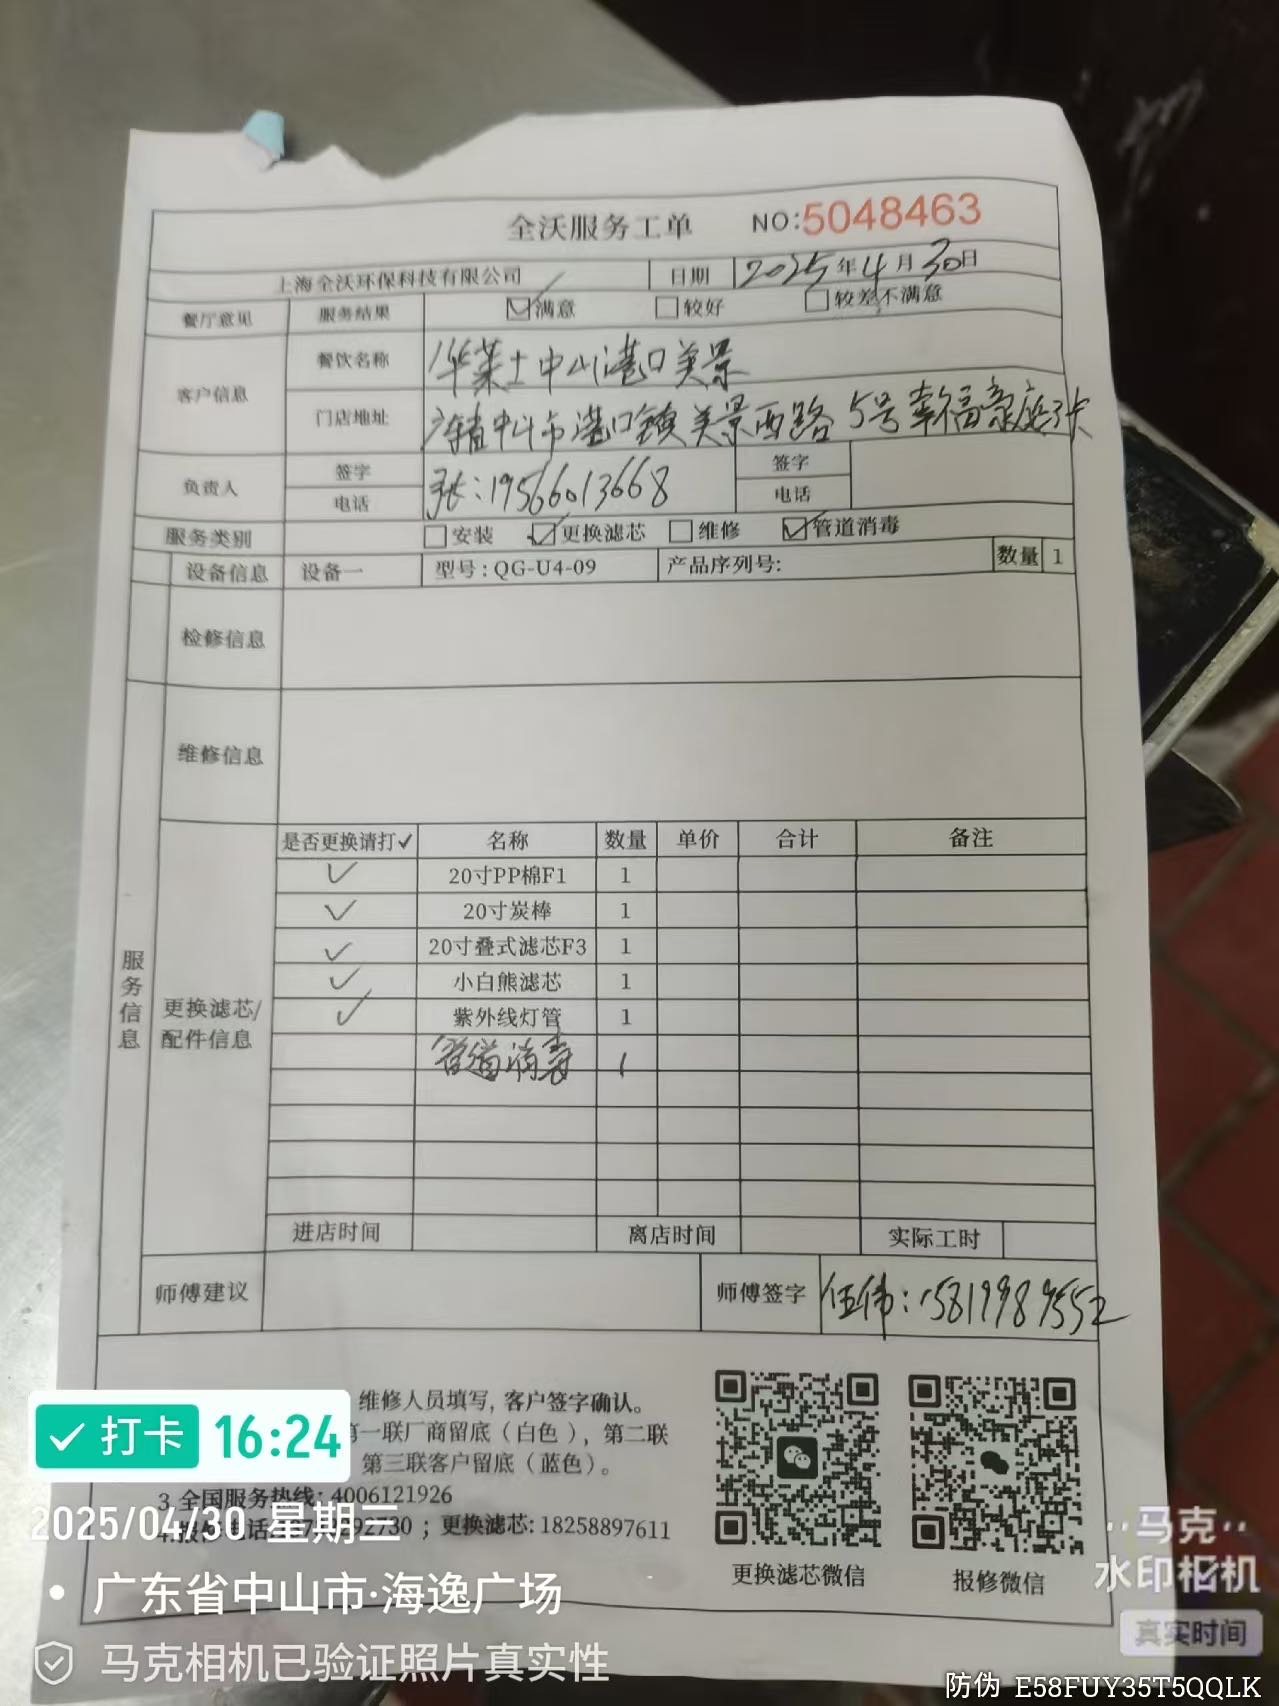 全沃服务工单 NO:5048463
上海全沃环保科技有限公司 日期 2025年4月30日
餐厅意见 服务结果 ☑满意 □较好 □较差不满意
客户信息 餐饮名称 华莱士中山港口美景
门店地址 广东省中山市港口镇美景西路5号幸福豪庭3卡
负责人 签字 张:19566013668 签字
电话 电话
服务类别 □安装 ☑更换滤芯 □维修 ☑管道消毒
设备信息 设备一 型号:QG-U4-09 产品序列号: 数量 1
检修信息
维修信息
服务信息
更换滤芯/
配件信息
是否更换请打✓ 名称 数量 单价 合计 备注
✓ 20寸PP棉F1 1
✓ 20寸炭棒 1
✓ 20寸叠式滤芯F3 1
✓ 小白熊滤芯 1
✓ 紫外线灯管 1
管道消毒 1
进店时间 离店时间 实际工时
师傅建议 师傅签字 伍伟:15819989552
维修人员填写,客户签字确认。
第一联厂商留底(白色),第二联
第三联客户留底(蓝色)。
3.全国服务热线:4006121926
92730;更换滤芯:18258897611
更换滤芯微信 报修微信
✓打卡 16:24
2025/04/30 星期三
• 广东省中山市·海逸广场
马克相机已验证照片真实性
马克
水印相机
真实时间
防伪 E58FUY35T5QQLK